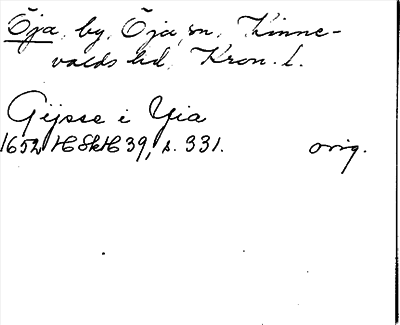 Öja, by, Öja sn, Kinne-
valds hd, Kron. l.
Gijsse i Yia
1652 HSkH 39, s. 331. orig.